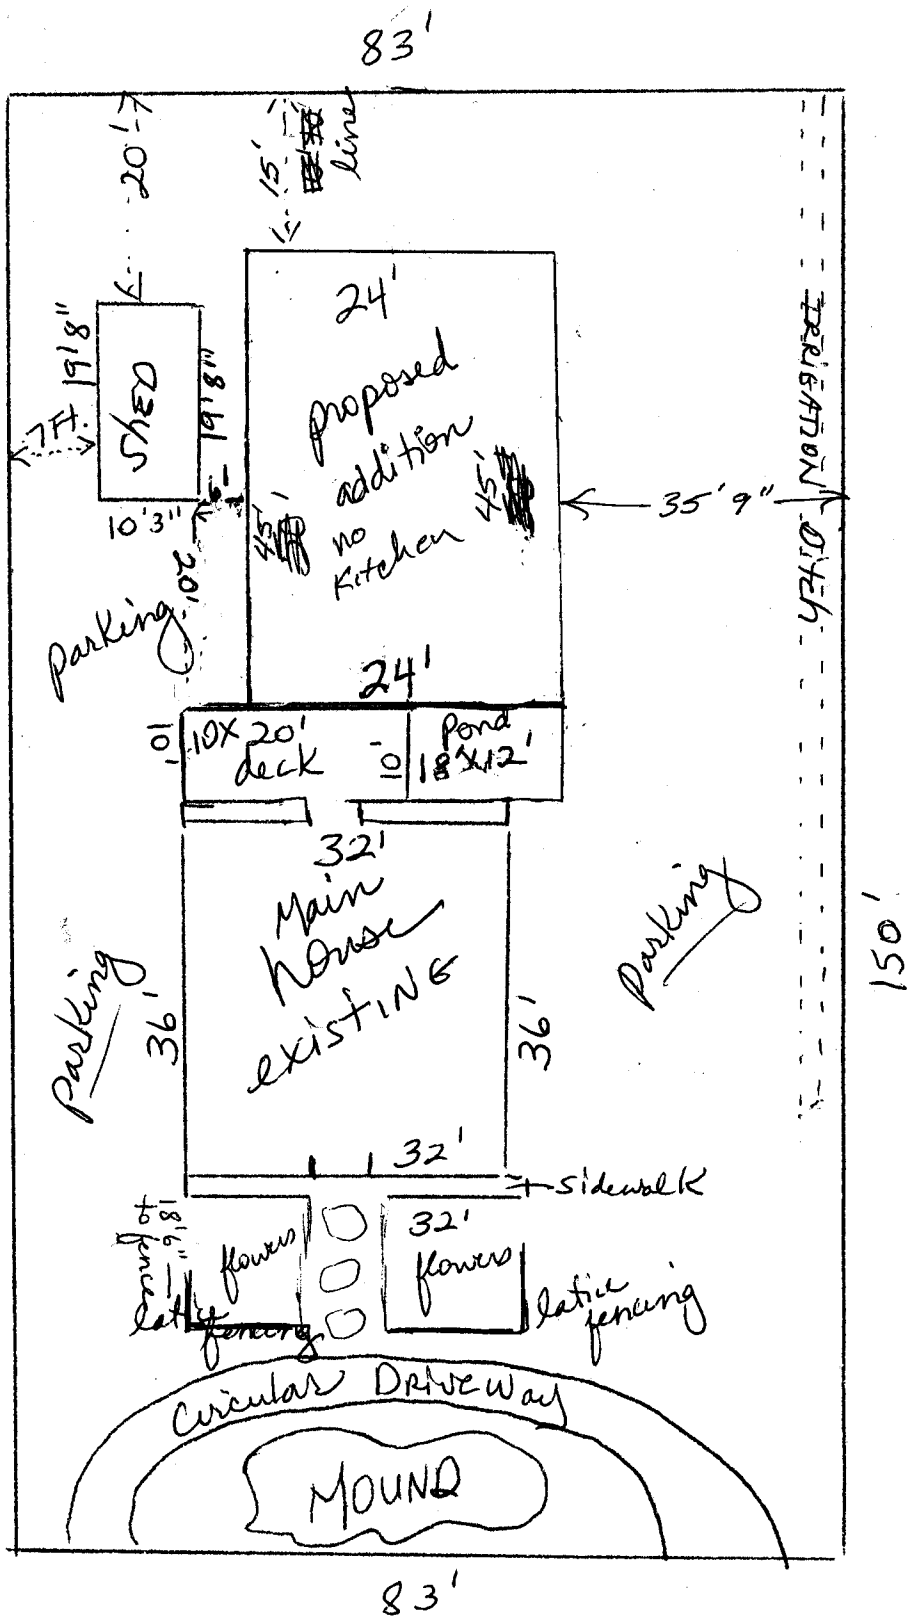 83'
20'
15'
line
24'
19'8"
Shed
19'8"
7 Ft.
10'3"
6'
proposed
addition
no
Kitchen
45'
45'
35' 9"
IRRIGATION Ditch
20'
parking
24'
10'
10 X 20'
deck
10'
Pond
18' X 12'
32'
Main
house
existing
36'
36'
Parking
Parking
150'
32'
sidewalk
18'6"
to fence
flowers
32'
flowers
latice
fencing
latice
fencing
Circular DRIVEWay
MOUND
83'